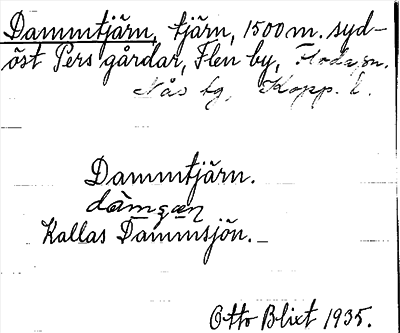 Dammtjärn, tjärn, 1500 m. syd-
öst Pers gårdar, Flen by, Floda sn.
Nås bg, Kopp. l.
Dammtjärn.
Kallas Dammsjön.
Otto Blixt 1935.